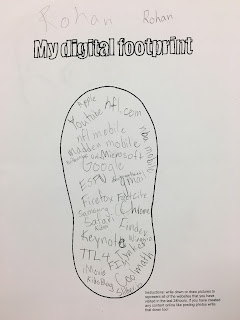 Rohan Rohan
My digital footprint
Apple
Youtube nfl.com
nba mobile
nfl mobile
madden mobile
Microsoft
Google
ESPN Gmail
Firefox
Samsung Chrome
Safari Finder
Keynote
TTL4
iMovie
Kidblog Coolmath
Instructions: write down or draw pictures to
represent all of the websites that you have
visited in the last 24 hours. If you have created
any content online like posting photos write
that down too!